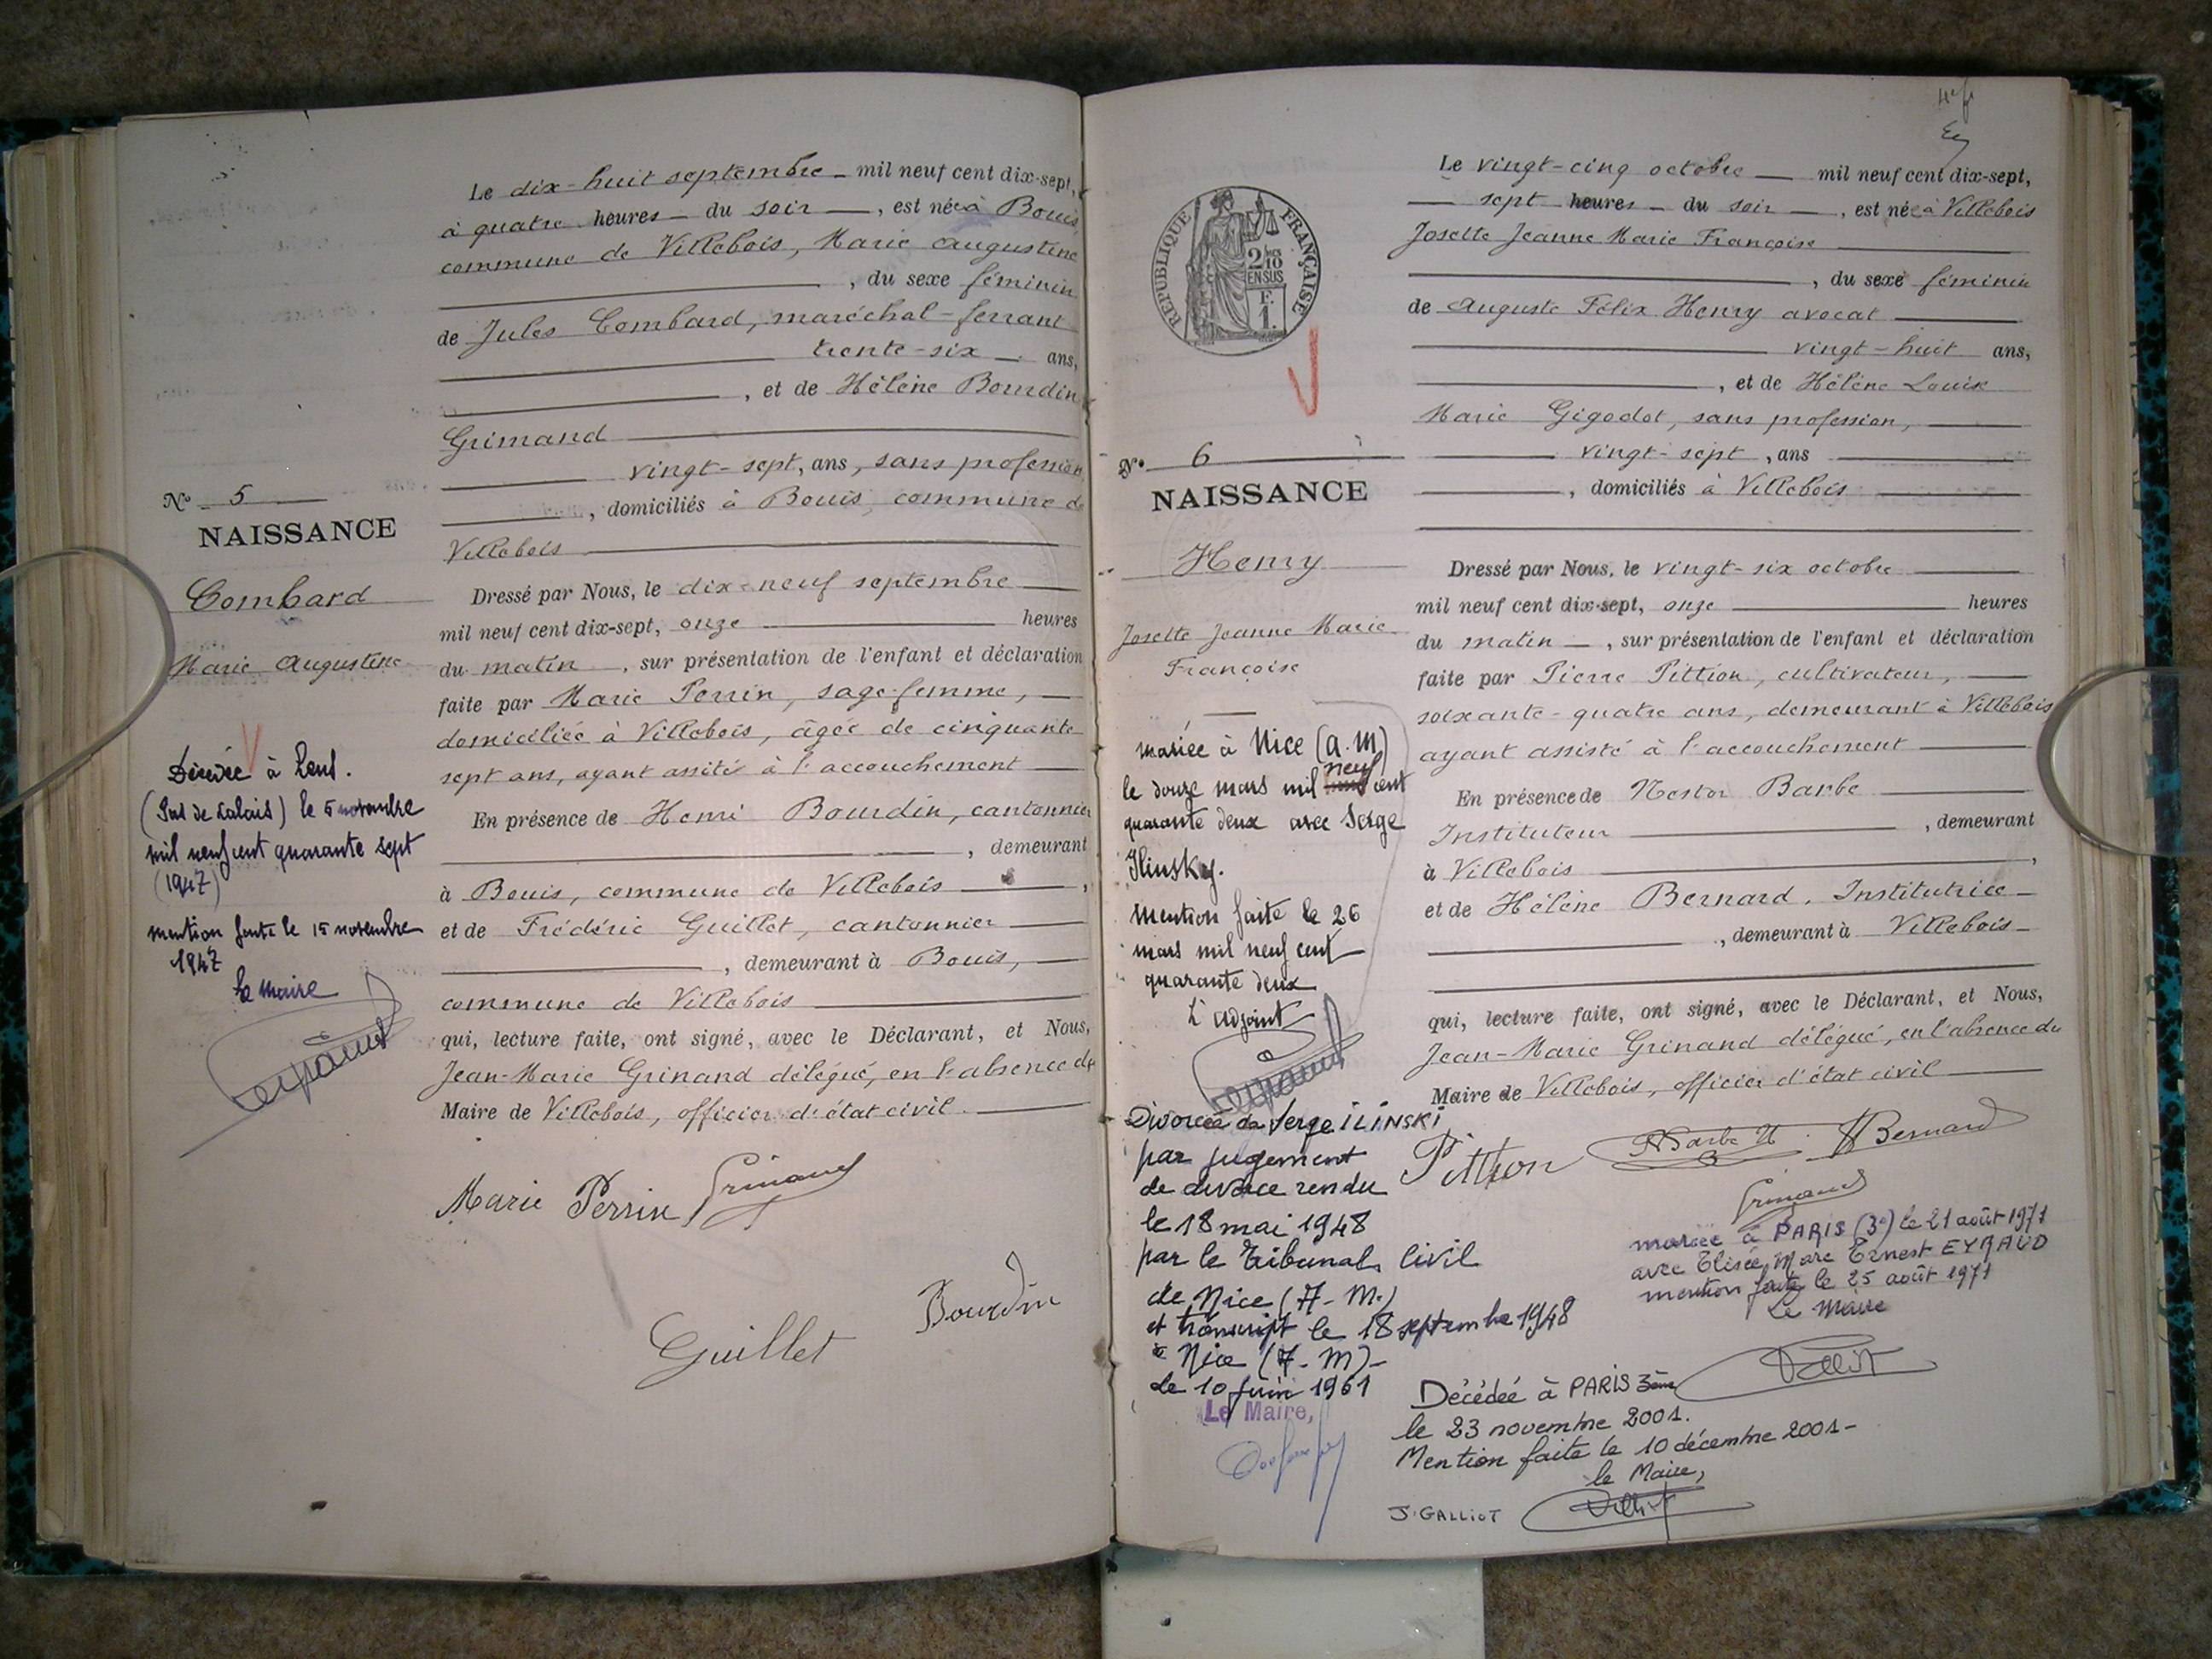 Le dix-huit septembre mil neuf cent dix-sept,
à quatre heures du soir, est née à Bouis
commune de Villebois, Marie Augustine
, du sexe féminin
de Jules Combard, maréchal-ferrant
trente-six ans,
, et de Hélène Bourdin
Grimand
vingt-sept, ans, sans profession
, domiciliés à Bouis, commune de
Villebois
Dressé par Nous, le dix-neuf septembre
mil neuf cent dix-sept, onze heures
du matin, sur présentation de l'enfant et déclaration
faite par Marie Perrin, sage-femme,
domiciliée à Villebois, âgée de cinquante
sept ans, ayant assité à l'accouchement
En présence de Henri Bourdin, cantonnier
, demeurant
à Bouis, commune de Villebois,
et de Frédéric Guillet, cantonnier
, demeurant à Bouis,
commune de Villebois
qui, lecture faite, ont signé, avec le Déclarant, et Nous,
Jean-Marie Grinand délégué, en l'absence du
Maire de Villebois, officier d'état civil.
Marie Perrin Grinand
Guillet Bourdin
No 5
NAISSANCE
Combard
Marie Augustine
Décédée à Lens.
(Pas de Calais) le 5 novembre
mil neuf cent quarante sept
(1947)
mention faite le 15 novembre
1947
Le Maire
REPUBLIQUE FRANÇAISE
2/10
EN SUS
F.
1.
No 6
NAISSANCE
Henry
Josette Jeanne Marie
Françoise
mariée à Nice (A.M)
le douze mars mil neuf cent
quarante deux avec Serge
Ilinsky.
Mention faite le 26
mars mil neuf cent
quarante deux
L'adjoint
Divorcée de Serge ILINSKI
par jugement
de divorce rendu
le 18 mai 1948
par le Tribunal Civil
de Nice (A-M.)
et transcript le 18 septembre 1948
à Nice (A-M)-
le 10 juin 1961
Le Maire,
Le vingt-cinq octobre mil neuf cent dix-sept,
sept heures du soir, est née à Villebois
Josette Jeanne Marie Françoise
, du sexe féminin
de Auguste Félix Henry avocat
vingt-huit ans,
, et de Hélène Louise
Marie Gigodot, sans profession,
vingt-sept, ans
, domiciliés à Villebois
Dressé par Nous, le vingt-six octobre
mil neuf cent dix-sept, onze heures
du matin, sur présentation de l'enfant et déclaration
faite par Pierre Pittion, cultivateur,
soixante-quatre ans, demeurant à Villebois
ayant assisté à l'accouchement
En présence de Nestor Barbe
Instituteur, demeurant
à Villebois,
et de Hélène Bernard, Institutrice
, demeurant à Villebois
qui, lecture faite, ont signé, avec le Déclarant, et Nous,
Jean-Marie Grinand délégué, en l'absence du
Maire de Villebois, officier d'état civil
Pittion Barbe N HBernard
Grinand
mariée à PARIS (3e) le 21 août 1971
avec Elisée Marc Ernest EYRAUD
mention faite le 25 août 1971
Le Maire
Décédée à PARIS 3ème
le 23 novembre 2001.
Mention faite le 10 décembre 2001-
le Maire,
J. GALLIOT